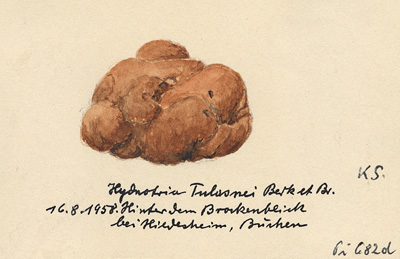 K S.
Hydnotria Tulasnei Berk et Br.
16.8.1958. Hinter dem Brockenblick
bei Hildesheim, Buchen
Pi 682d